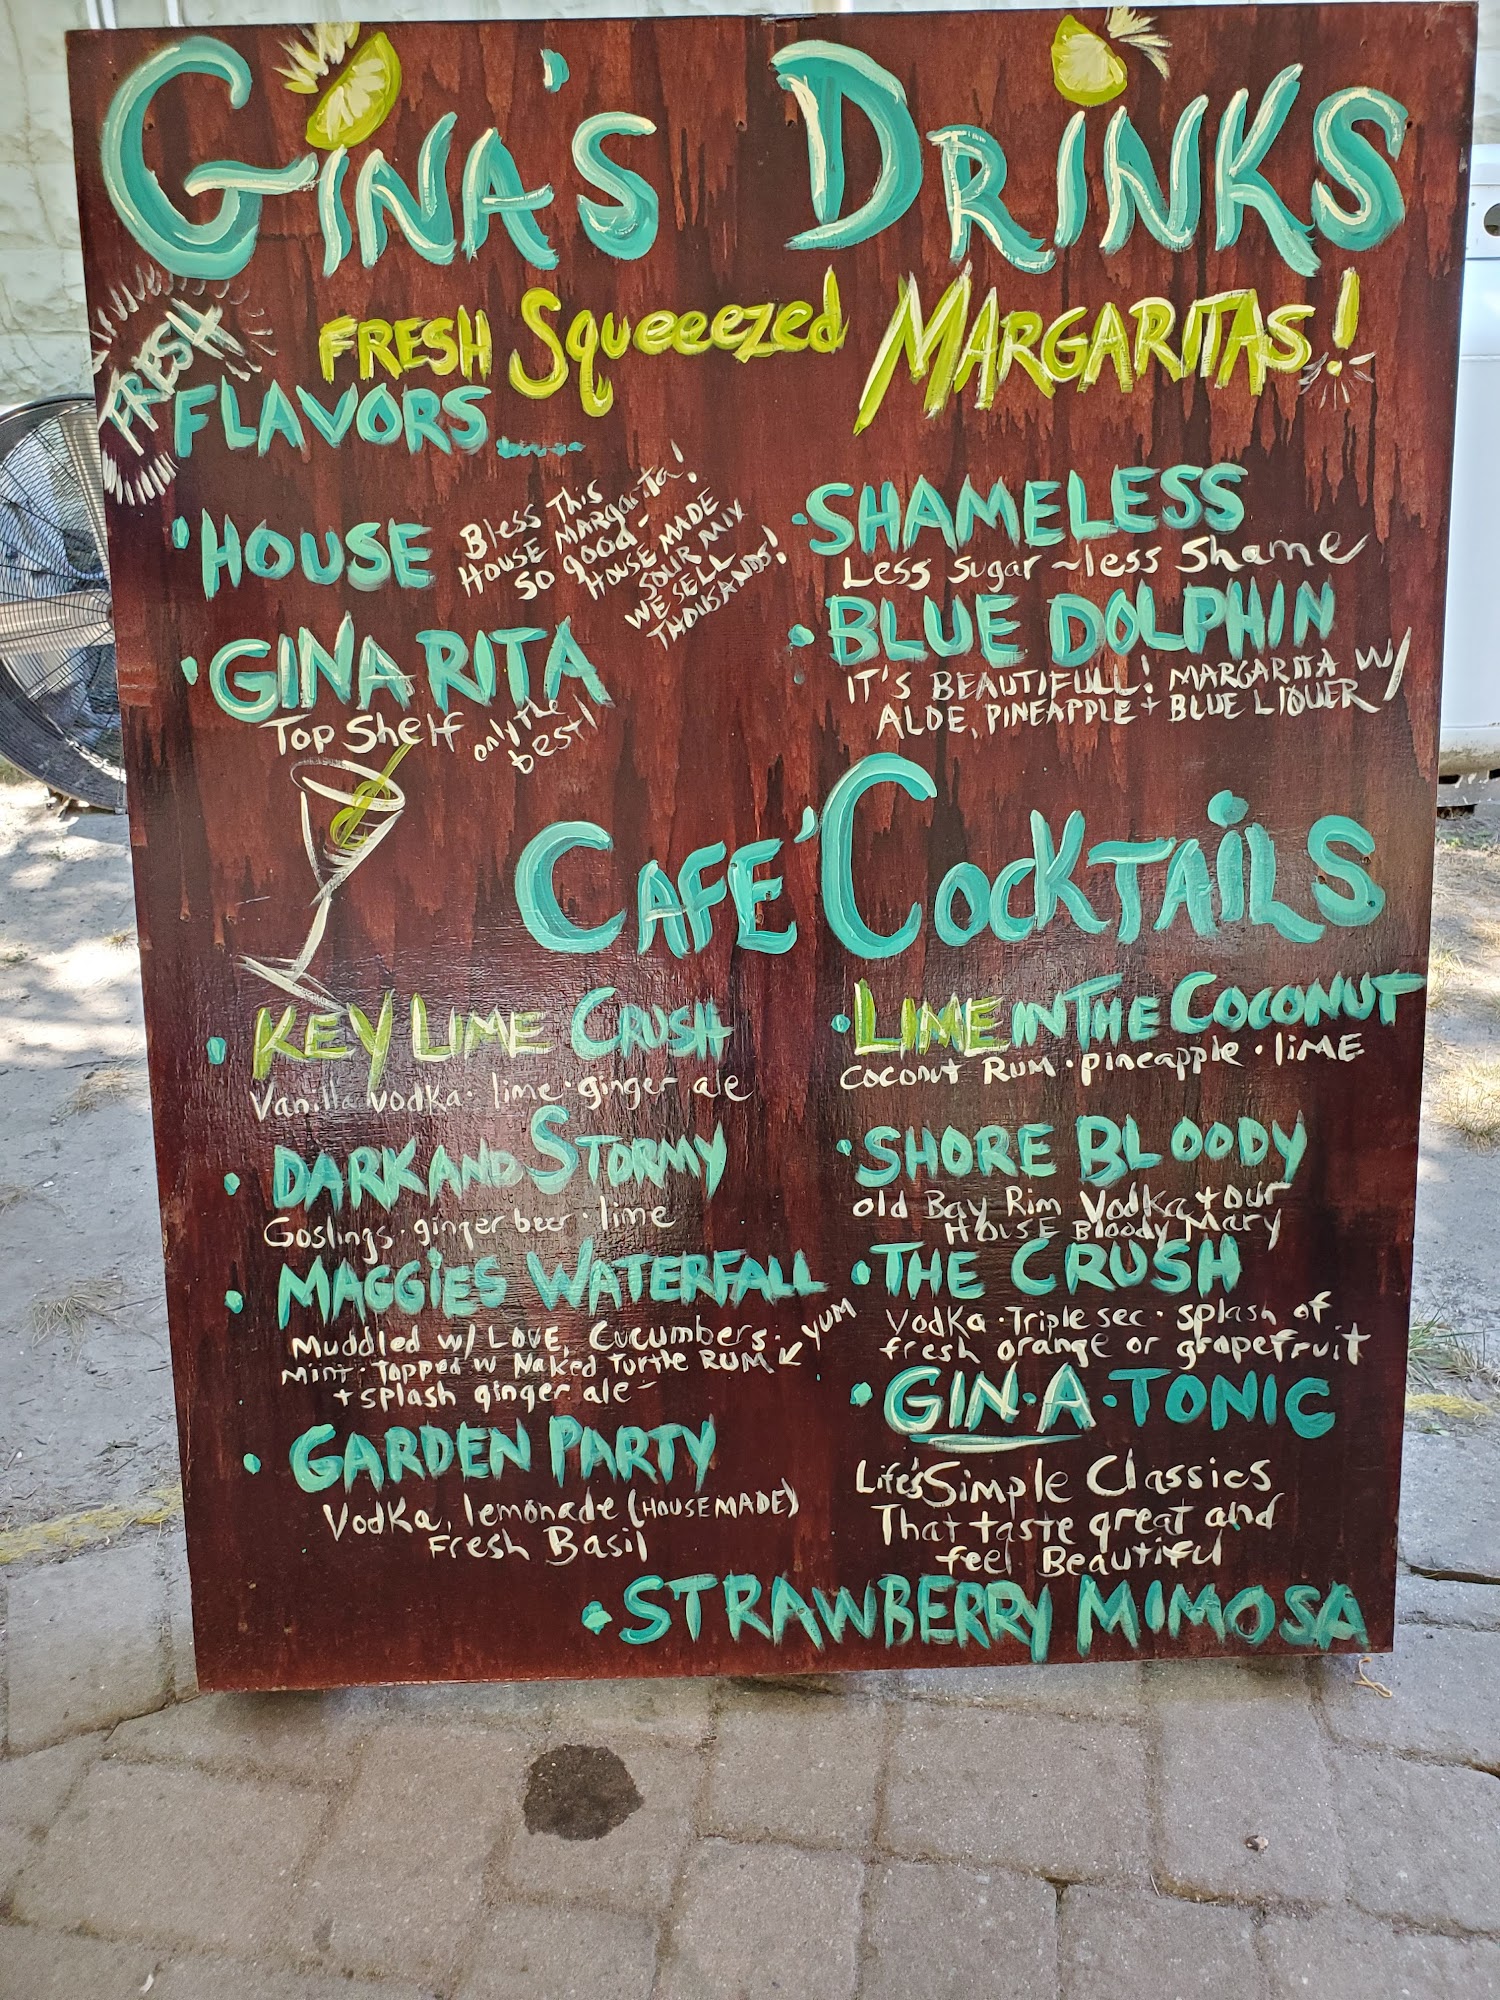 GINA'S DRINKS
FRESH Squeeezed MARGARITAS!
FRESH
FLAVORS
• HOUSE
Bless This
HOUSE MARGARITA!
SO good -
HOUSE MADE
SOUR MIX
WE SELL
THOUSANDS!
• GINA RITA
Top Shelf only the
best!
• SHAMELESS
Less sugar ~ less shame
• BLUE DOLPHIN
IT'S BEAUTIFULL! MARGARITA W/
ALOE, PINEAPPLE + BLUE LIQUER
CAFE' COCKTAILS
• KEY LIME CRUSH
Vanilla vodka · lime · ginger ale
• DARK AND STORMY
Goslings · ginger beer · lime
• MAGGIES WATERFALL
Muddled w/ LOVE, Cucumbers
Mint · Topped w Naked Turtle RUM
+ splash ginger ale -
YUM
• GARDEN PARTY
Vodka, lemonade (HOUSEMADE)
Fresh Basil
• LIME IN THE COCONUT
Coconut Rum · pineapple · lime
• SHORE BLOODY
old Bay Rim Vodka + our
HOUSE Bloody Mary
• THE CRUSH
Vodka · Triple sec · splash of
fresh orange or grapefruit
• GIN·A·TONIC
Life's Simple Classics
That taste great and
feel Beautiful
• STRAWBERRY MIMOSA